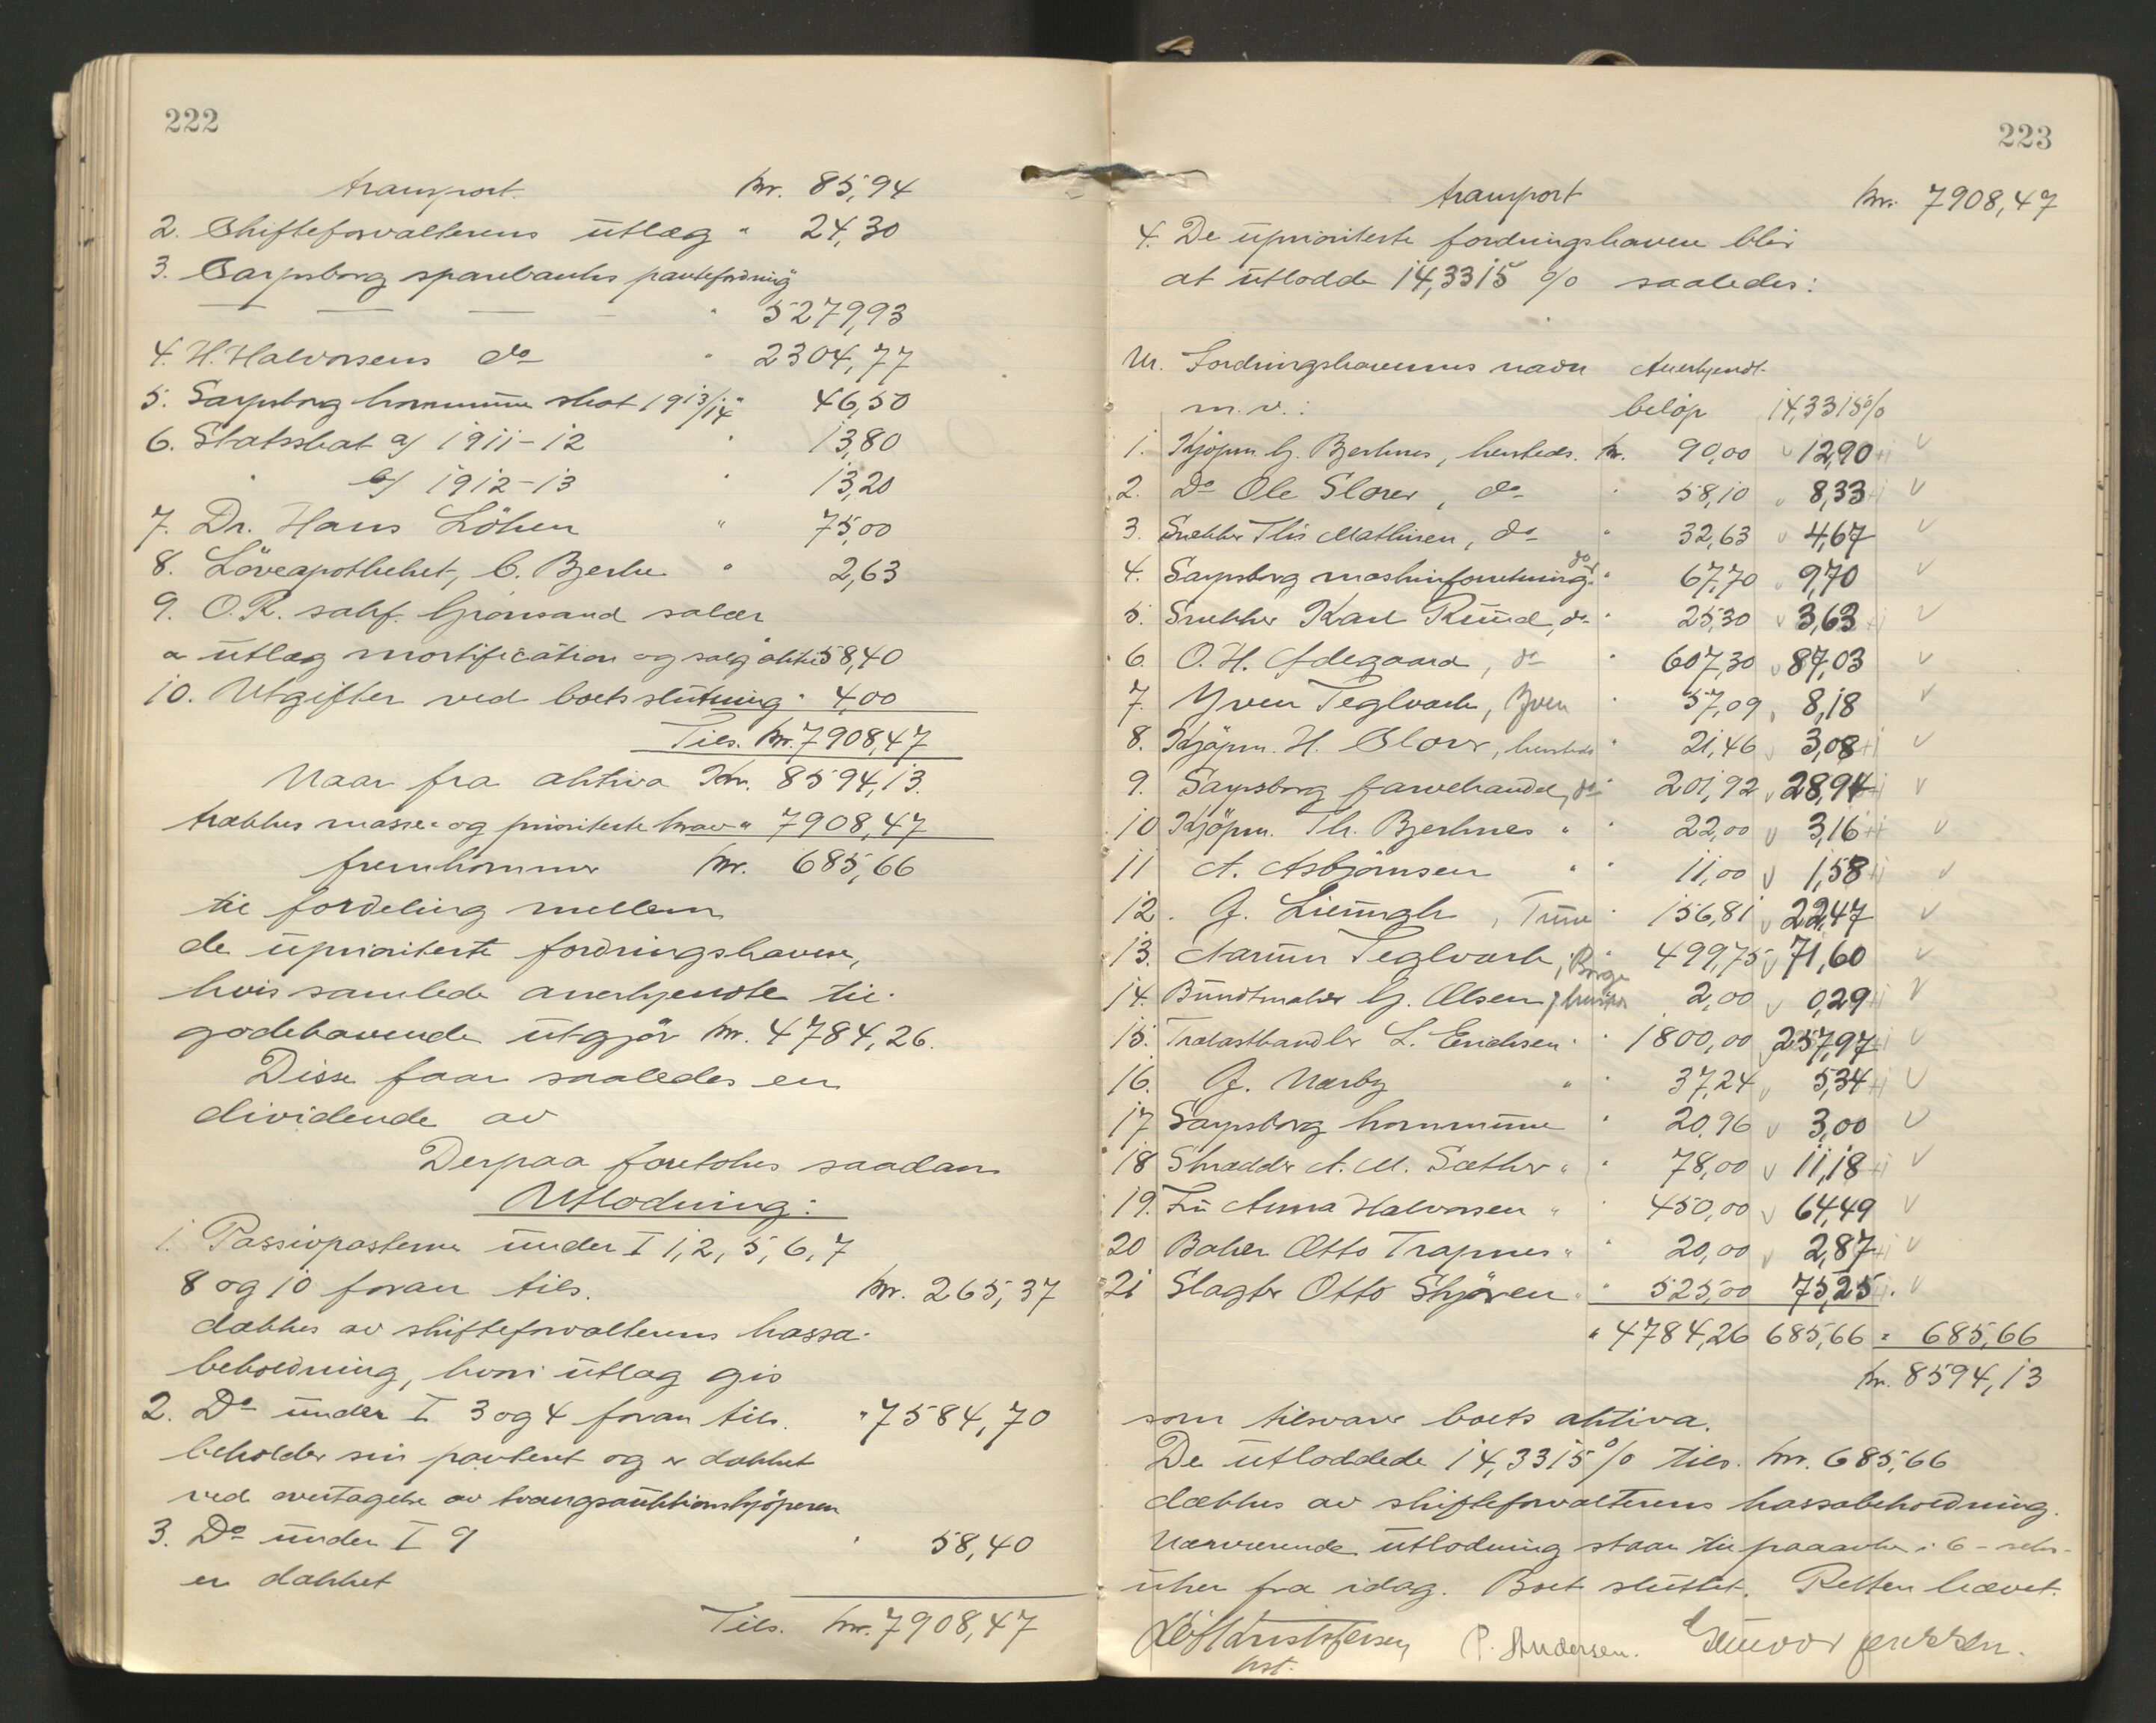 222
transport. kr. 85,94
2. Skifteforvalterens utlæg " 24,30
3. Sarpsborg sparebanks pantefordring
— — — — " 5279,93
4. H. Halvorsens do " 2304,77
5. Sarpsborg kommune skat 1913/14 " 46,50
6. Statsskat a/ 1911-12 " 13,80
" b/ 1912-13 " 13,20
7. Dr. Hans Löken " 75,00
8. Löveapotheket, C. Bjerke " 2,63
9. O.R. sakf. Grönsand salær
a utlæg mortification og salg aktie 58,40
10. Utgifter ved boets slutning " 4,00
Tils. kr. 7908,47
Naar fra aktiva Kr. 8594,13.
trækkes masse- og prioriterte krav " 7908,47
fremkommer kr. 685,66
til fordeling mellem
de uprioriterte fordringshavere,
hvis samlede anerkjendte til-
godehavende utgjør kr. 4784,26.
Disse faar saaledes en
dividende av
Derpaa foretokes saadan
Utlodning:
1. Passivposterne under I 1, 2, 5, 6, 7
8 og 10 foran tils. kr. 265,37
dækkes av skifteforvalterens kassa-
beholdning, hvori utlæg gis
2. Do under I 3 og 4 foran tils. " 7584,70
beholder sin panteret og er dækket
ved overtagelse av tvangsauktionskjöperen
3. Do under I 9 " 58,40
er dækket
Tils. kr. 7908,47
223
transport kr. 7908,47
4. De uprioriterte fordringshavere blir
at utlodde 14,3315 % saaledes:
Nr. Fordringshavernes navn Anerkjendt
m.v.: beløp 14,3315%
1. Kjöpm. G. Bjerknes, hersteds. kr. 90,00 12,90
2. Do Ole Slorer, do " 58,10 8,33
3. Snekker Ths Mathisen, do " 32,63 4,67
4. Sarpsborg maskinforretning do " 67,70 9,70
5. Snekker Karl Ruud, do " 25,30 3,63
6. O. H. Ødegaard, do " 607,30 87,03
7. Yven Teglverk, Yven " 57,09 8,18
8. Kjöpm. H. Slorer, hersteds " 21,46 3,08
9. Sarpsborg farvehandel, do " 201,92 28,94
10 Kjöpm. Th. Bjerknes " " 22,00 3,16
11 A. Asbjörnsen " " 11,00 1,58
12. J. Liemugh, Tune " 156,81 22,47
13. Narum Teglverk, Borge " 499,75 71,60
14. Buntmaker G. Olsen, hersteds 2,00 0,29
15. Trælasthandler L. Erichsen " " 1800,00 257,97
16. J. Nærby " " 37,24 5,34
17 Sarpsborg kommune " 20,96 3,00
18 Skrædder A. M. Sæther " " 78,00 11,18
19. Fru Anna Halvorsen " " 450,00 64,49
20 Baker Otto Trapnes " " 20,00 2,87
21 Slagter Otto Skjören " " 525,00 75,25
" 4784,26 685,66 " 685,66
kr. 8594,13
som tilsvarer boets aktiva.
De utloddede 14,3315 % tils. kr. 685,66
dækkes av skifteforvalterens kassabeholdning.
Nærværende utlodning staar til paaanke i 6 - seks -
uker fra idag. Boet sluttet. Retten hævet.
Leif Kristofersen P. Andersen. Gunvor Jenssen.
kst.